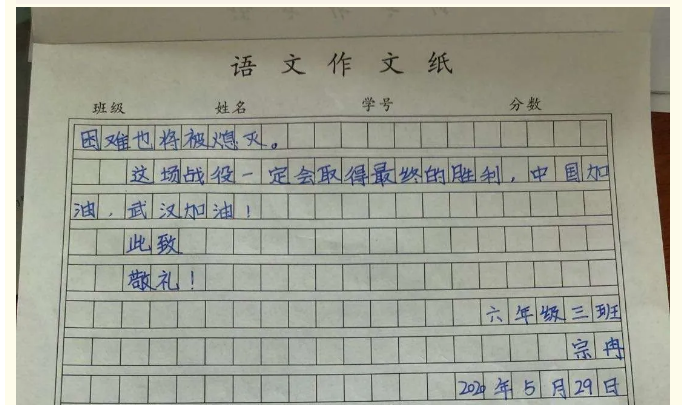 语文作文纸
班级 姓名 学号 分数
困难也将被熄灭。
这场战役一定会取得最终的胜利，中国加
油，武汉加油！
此致
敬礼！
六年级三班
宗冉
2020年5月29日